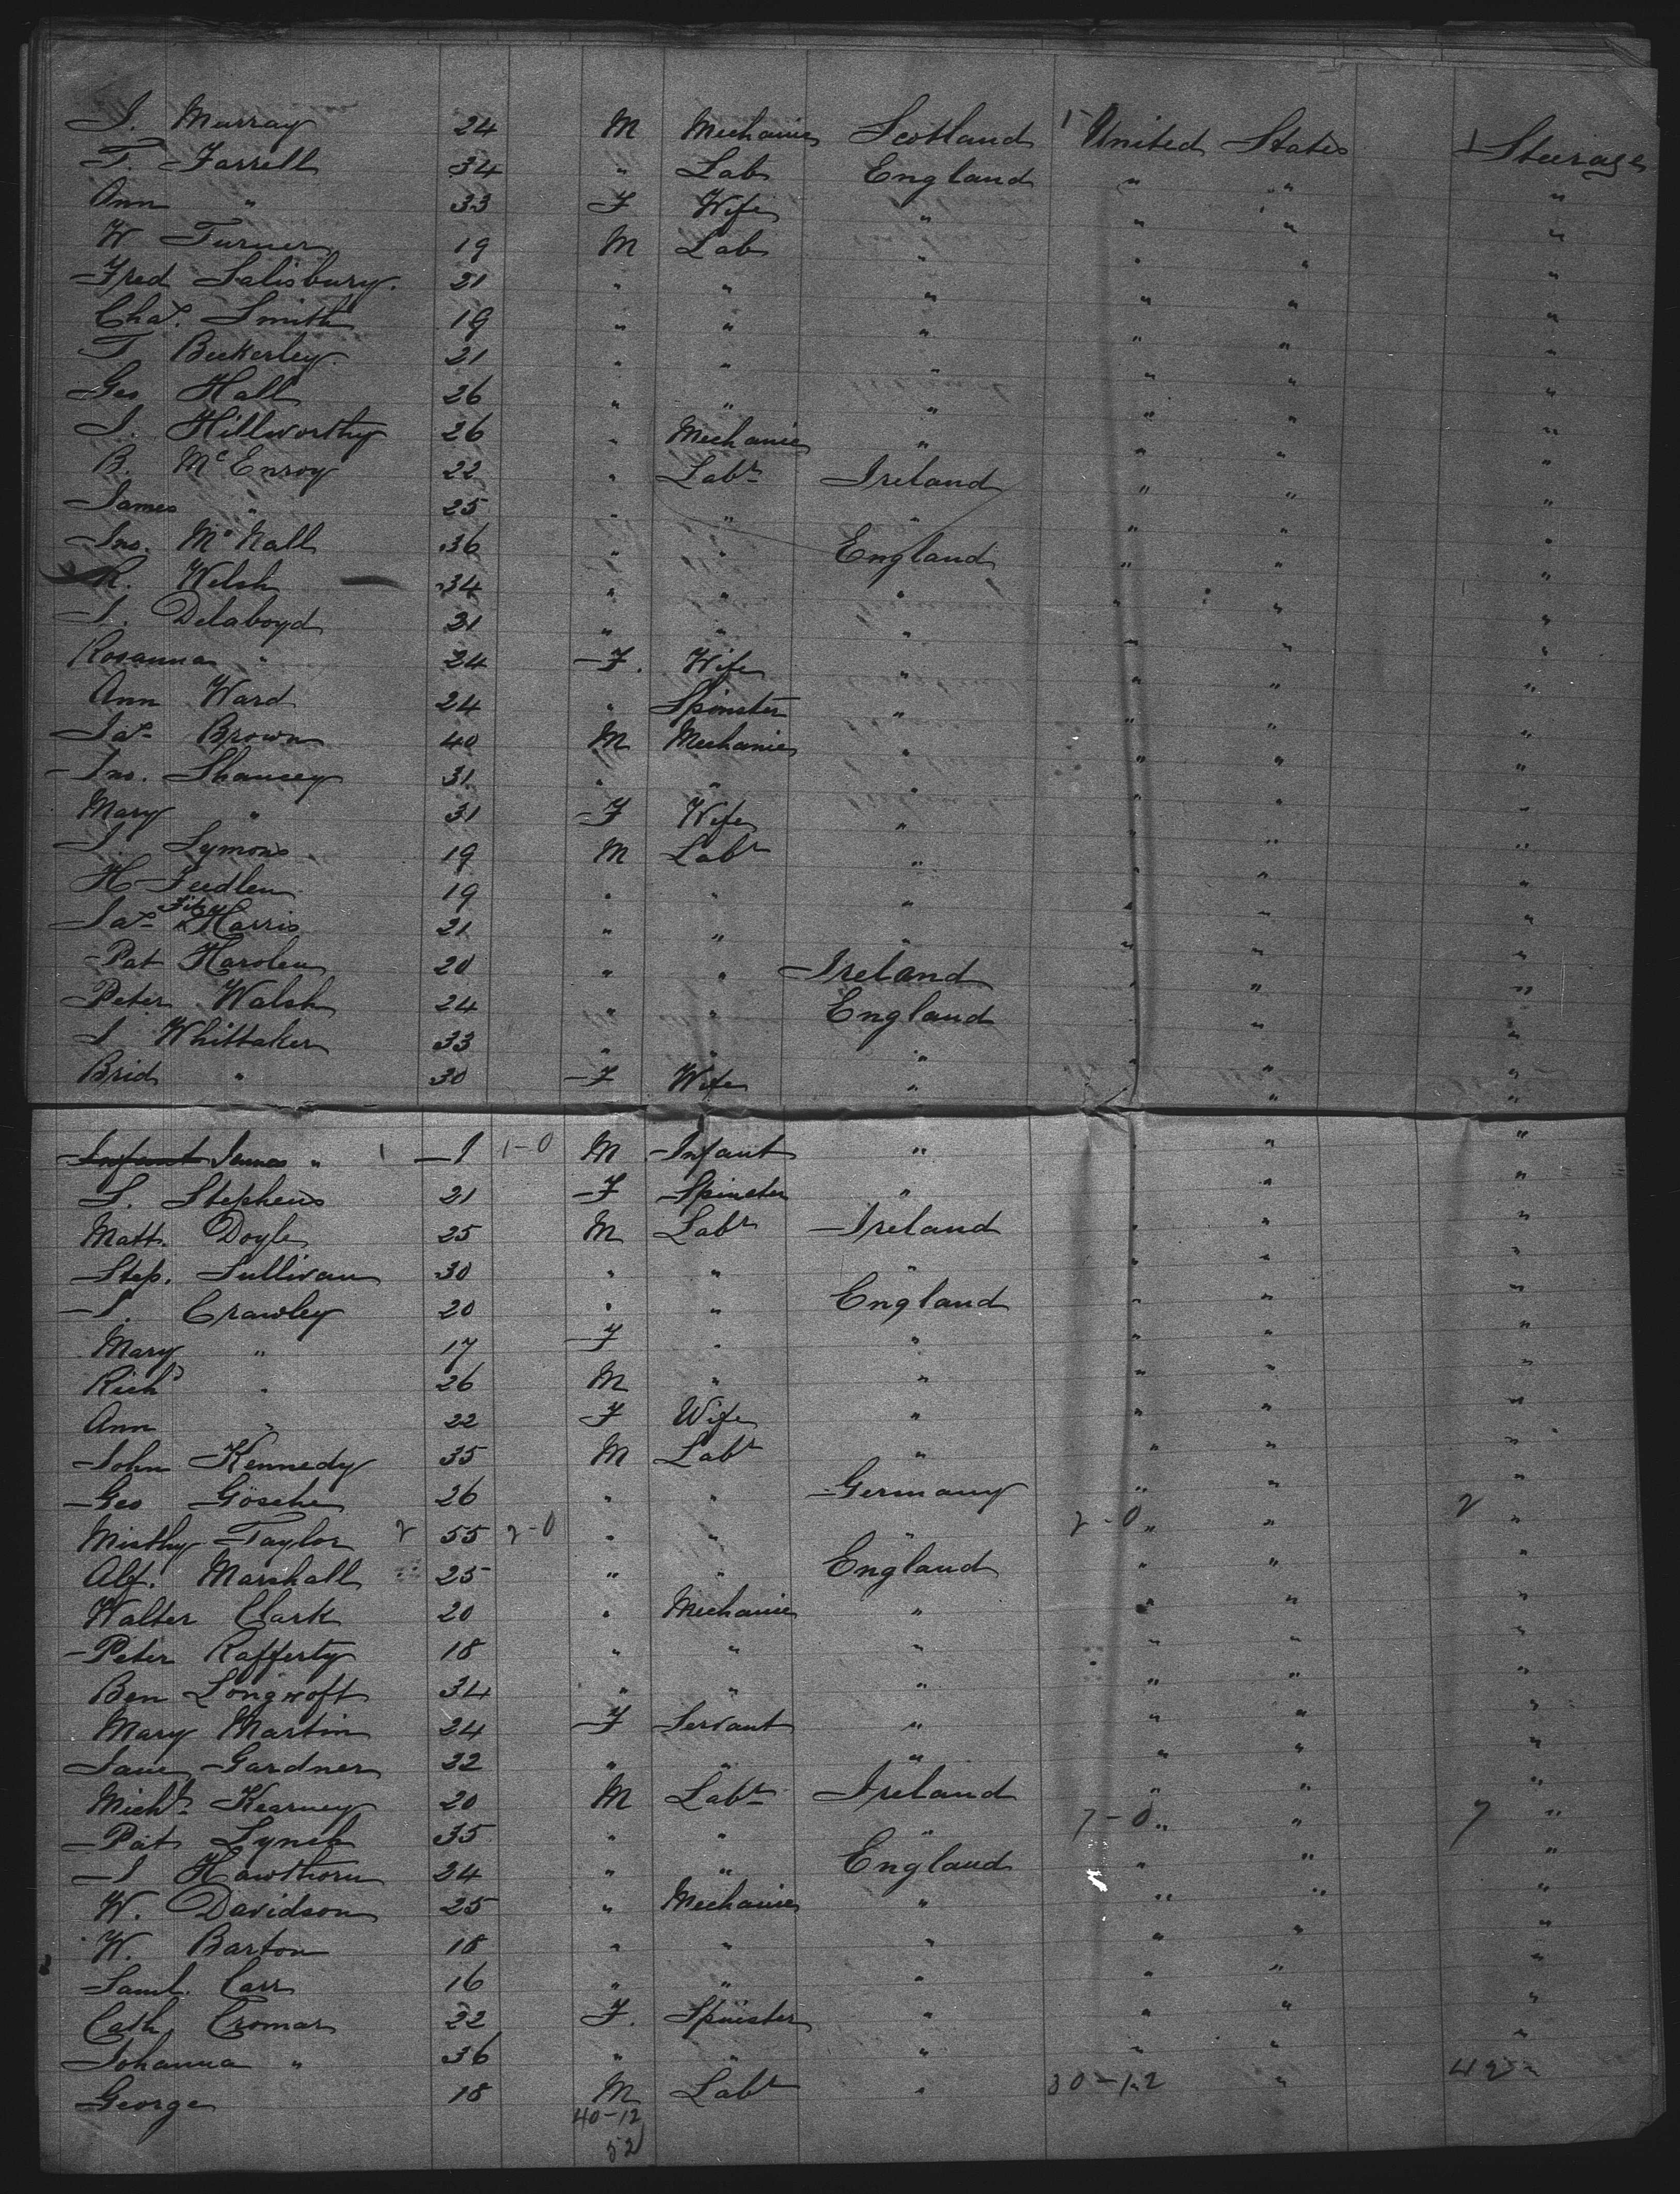 J. Murray 24 M Mechanic Scotland 1- United States 1 Steerage
T. Farrell 34 " Lab England " " "
Ann " 33 F Wife " " " "
W Turner 19 M Lab " " " "
Fred Salisbury. 21 " " " " " "
Chas. Smith 19 " " " " " "
T Beckerley. 21 " " " " " "
Geo Hall 26 " " " " " "
J. Hillworthy 26 " Mechanic " " " "
B. McEnroy 22 " Labr Ireland " " "
James " 25 " " " " " "
Jno. McNall 36 " " England " " "
R. Welsh 34 " " " " " "
J. Delaboyd 21 " " " " " "
Rosanna " 24 F. Wife " " " "
Ann Ward 24 " Spinster " " " "
Jas Brown 40 M Mechanic " " " "
Jno. Shausey 31 " " " " " "
Mary " 31 F Wife " " " "
J. Symons 19 M Labr " " " "
H 19 " " " " " "
Jas Fitz Harris 21 " " " " " "
Pat Harolen 20 " " Ireland " " "
Peter Walsh 24 " " England " " "
J Whittaker 33 " " " " " "
Brid " 30 F Wife " " " "
Infant James " 1 1 1-0 M Infant " " " "
S. Stephens 21 F Spinster " " " "
Matt. Doyle 25 M Labr Ireland " " "
Step. Sullivan 30 " " " " " "
J. Crawley 20 " " England " " "
Mary " 17 F " " " " "
Richd " 26 M " " " " "
Ann " 22 F Wife " " " "
John Kennedy 35 M Labr " " " "
Geo Gösche 26 " " Germany " " "
Taylor 2 55 2-0 " " " 2-0 " " 2 "
Alf. Marshall 25 " " England " " "
Walter Clark 20 " Mechanic " " " "
Peter Rafferty 18 " " " " " "
Ben Longwoft 34 " " " " " "
Mary Martin 24 F Servant " " " "
Jane Gardner 22 " " " " " "
Michl. Kearney 20 M Labr Ireland " " "
Pat Lynch 35 " " " 7-0 " " 7 "
J Hawthorn 24 " " England " " "
W. Davidson 25 " Mechanic " " " "
W. Barton 18 " " " " " "
Saml. Carr 16 " " " " " "
Cath Cromar 22 F. Spinster " " " "
Johanna " 36 " " " " " "
George 18 M Labr " 30-12 " 42 "
40-12
52